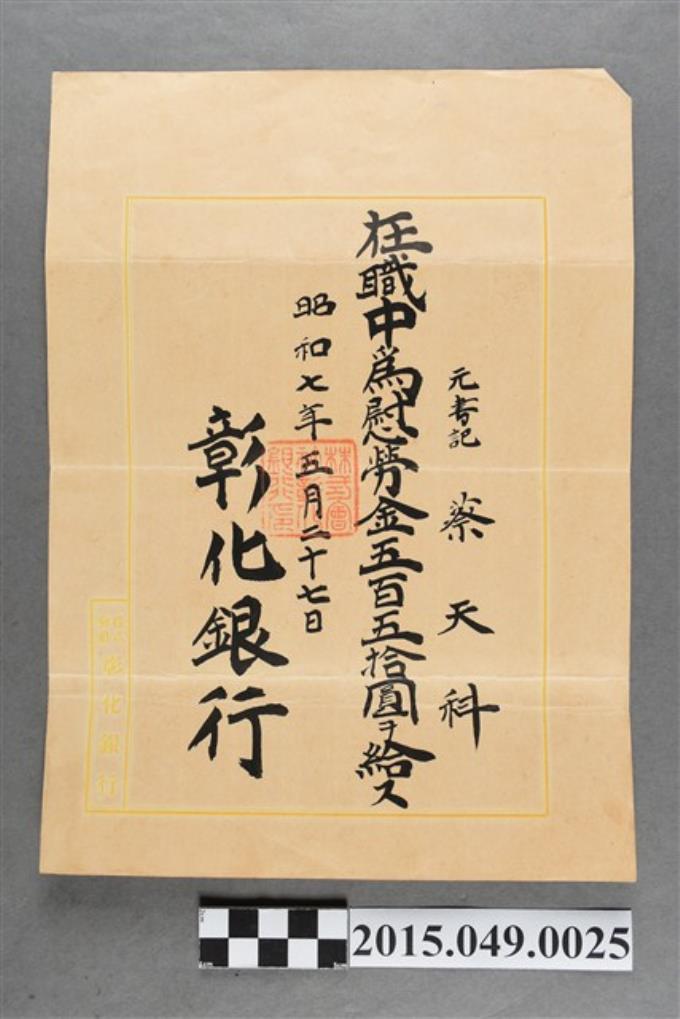 元書記 蔡天科
在職中為慰勞金五百五拾圓ヲ給ス
昭和七年五月二十七日
彰化銀行
株式會社彰化銀行
2015.049.0025